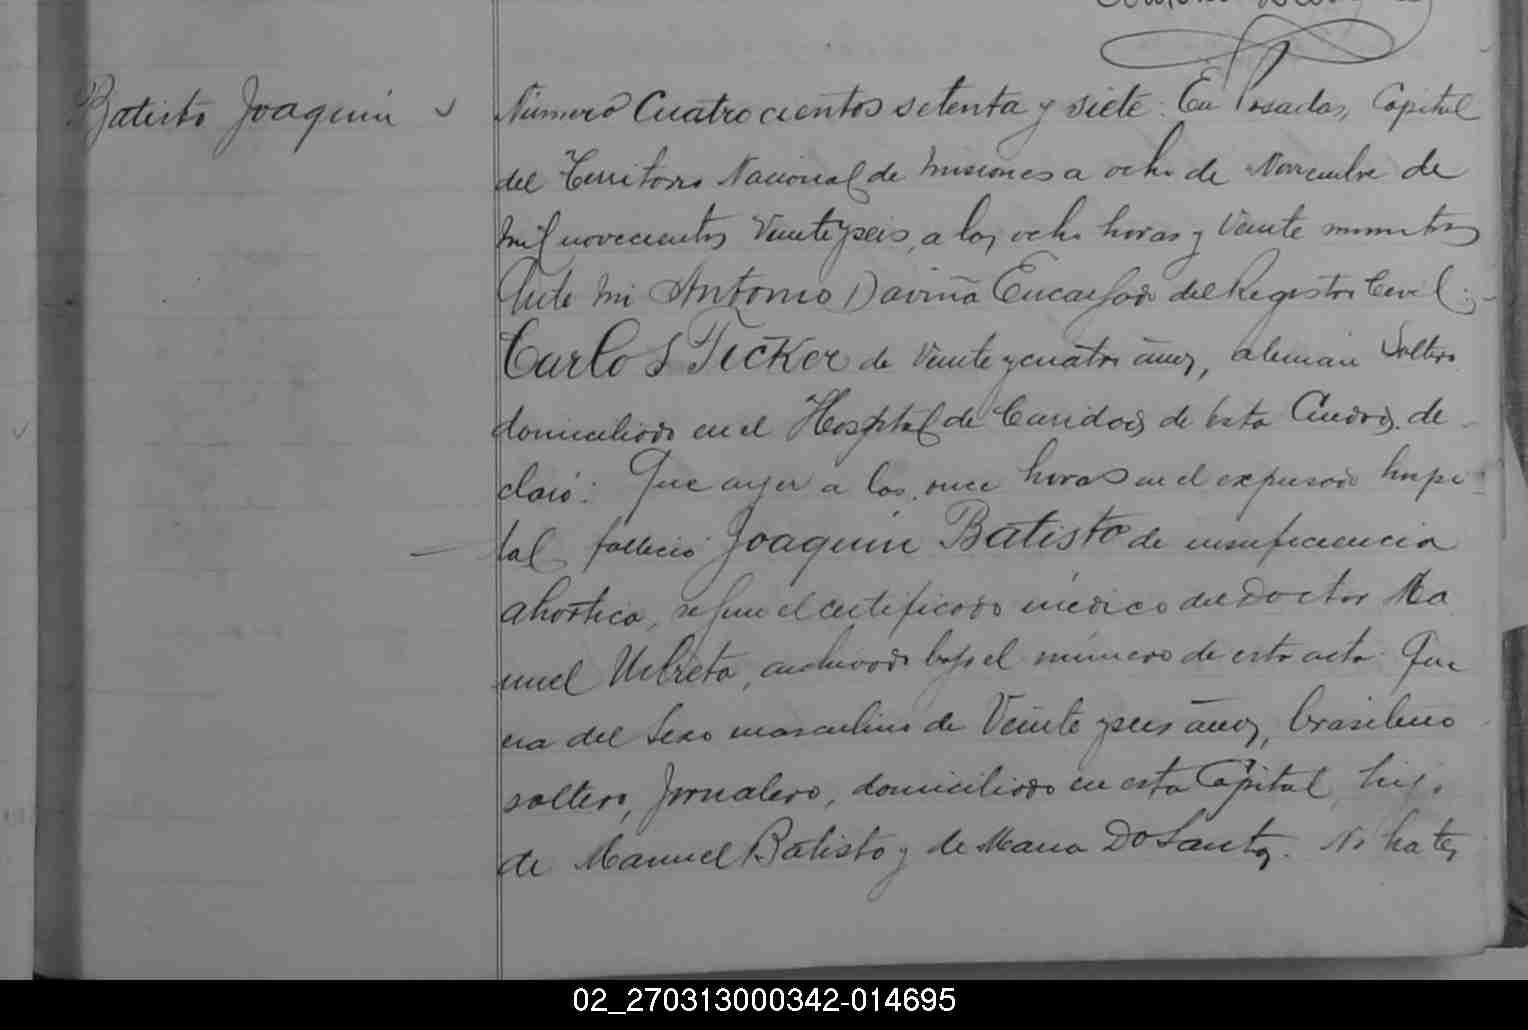 Batisto Joaquin
Número Cuatrocientos setenta y siete. En Posadas, Capital
del Territorio Nacional de Misiones a ocho de Noviembre de
mil novecientos Veinte y seis, a las ocho horas y Veinte minutos
Ante mi Antonio Daviña Encargado del Registro Civil
Carlos Tecker de Veinte y cuatro años, aleman Soltero
domiciliado en el Hospital de Caridad de esta Ciudad de-
claró: Que ayer a las once horas en el expresado hospi-
tal falleció Joaquin Batisto de insuficiencia
ahortica, segun el certificado médico del Doctor Ma
nuel Urbieta, archivado bajo el número de esta acta Que
era del Sexo masculino de Veinte y seis años, brasilero
soltero, Jornalero, domiciliado en esta Capital, hijo
de Manuel Batisto y de Maria Do Santos. No ha tes
02_270313000342-014695